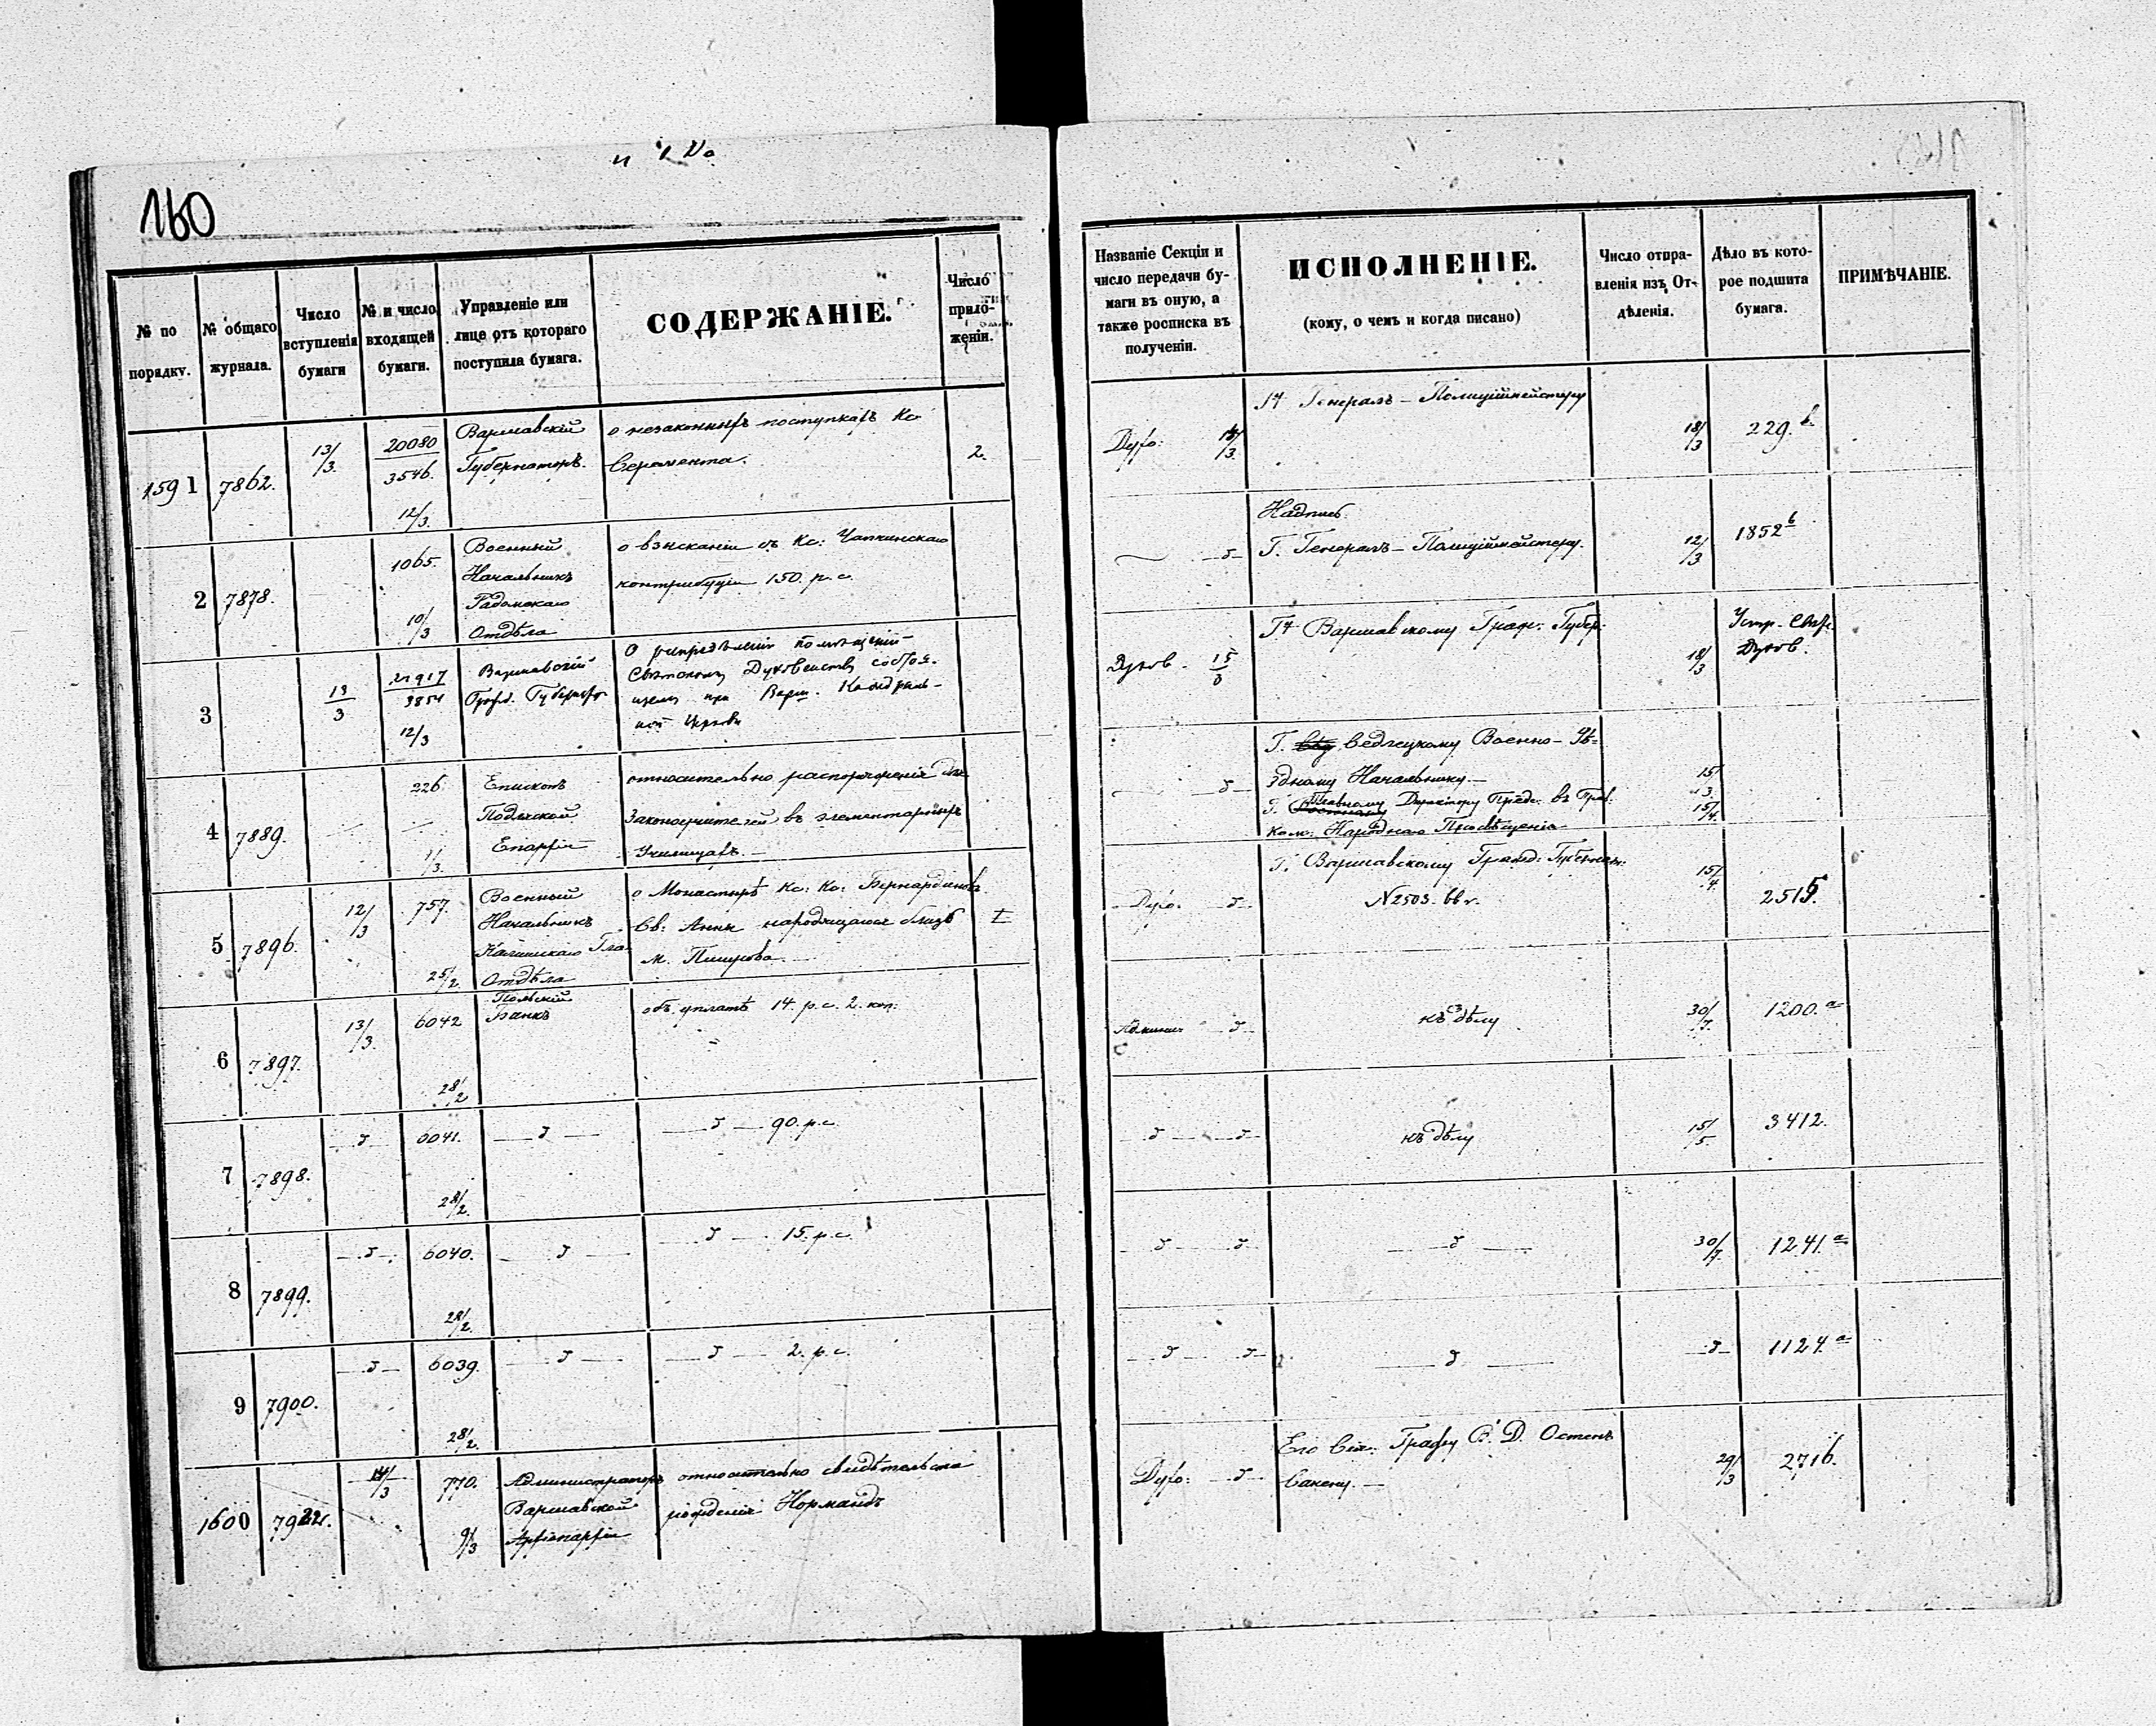 160
№ по порядку.
№ общаго журнала.
Число вступленія бумаги
№ и число входящей бумаги.
Управленіе или лице отъ котораго поступила бумага.
СОДЕРЖАНІЕ.
Число приложеніи.
Названіе Секціи и число передачи бумаги въ оную, а также росписка въ полученіи.
ИСПОЛНЕНІЕ.
(кому, о чемъ и когда писано)
Число отправленія изъ Отдѣленія.
Дѣло въ которое подшита бумага.
ПРИМѢЧАНІЕ.
1591 7862. 13/3. 20080
3546. 12/3.
Варшавскій
Губернаторъ.
о незаконныхъ поступкахъ Кс:
2.
Дух: 13/3.
Генералъ-Полиціймейстеру
18/3 229. b.
2 7878. 1065. 10/3
Военный
Начальникъ
Радомскаго
Отдѣла
о взысканіи съ Кс: Чапкинскаго
контрибуціи 150. р. с.
Надпись.
Г. Генералъ-Полиціймейстеру.
12/3 1852 b
3 13/3 21917
3854 12/3
Варшавскій
Гражд. Губернат.
О распредѣленіи помѣщеній
Свѣтскому Духовенству состоя-
щему при Варш. Каѳедраль-
ной Церкви
Духов. 15/3
Варшавскому Граж: Губер:
18/3
Духов.
4 7889. 226. 1/3.
Епископъ
Подляской
Епархіи
относительно распоряженія для
Законоучителей въ элементарныхъ
Училищахъ.—
Г. Седлецкому Военно-Уѣ-
здному Начальнику.—
Г. Главному Директору Предс: въ Прав:
Ком: Народнаго Просвѣщенія
15/3
15/4.
5 7896. 12/3 757. 25/2.
Военный
Начальникъ
Калишскаго
Отдѣла
о Монастырѣ Кс: Кс: Бернардиновъ
Св: Анны находящагося близъ
м.
I
Дух:
Г. Варшавскому Гражд: Губернат:
№ 2503.
15/4 2515.
6 7897. 13/3. 6042 28/2
Польскій
Банкъ
объ уплатѣ 14. р. с. 2. коп:
къ дѣлу
30/7. 1200. a
7 7898. 6041. 28/2.
90. р. с.
къ дѣлу
15/5 3412.
8 7899. 6040. 28/2.
15. р. с.
30/7. 1241. a
9 7900. 6039. 28/2.
2. р. с.
1124. a
1600 7922. 14/3 770. 9/3
Администраторъ
Варшавской
Архіепархіи
относительно свидѣтельства
рожденія Нормандъ
Дух:
Его Сія: Графу Ѳ. Д. Остенъ
Сакену.—
29/3 2716.